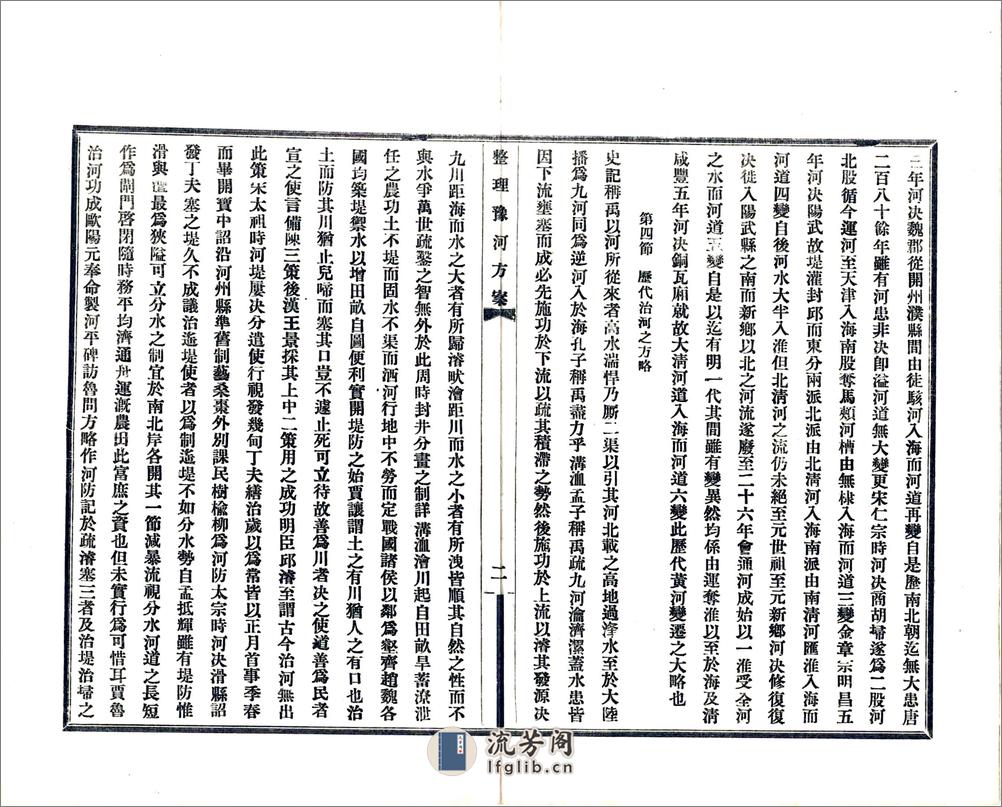 三年河決魏郡從開州濮縣間由徒駭河入海而河道再變自是歷南北朝迄無大患唐
二百八十餘年雖有河患非決即溢河道無大變更宋仁宗時河決商胡埽遂為二股河
北股循今運河至天津入海南股奪馬頰河槽由無棣入海而河道三變金章宗明昌五
年河決陽武故堤灌封邱而東分兩派北派由北清河入海南派由南清河匯淮入海而
河道四變自後河水大半入淮但北清河之流仍未絕至元世祖至元新鄉河決修復復
決徙入陽武縣之南而新鄉以北之河流遂廢至二十六年會通河成始以一淮受全河
之水而河道五變自是以迄有明一代其間雖有變異然均係由運奪淮以至於海及清
咸豐五年河決銅瓦廂就故大清河道入海而河道六變此歷代黃河變遷之大略也
第四節 歷代治河之方略
史記稱禹以河所從來者高水湍悍乃厮二渠以引其河北載之高地過洚水至於大陸
播為九河同為逆河入於海孔子稱禹盡力乎溝洫孟子稱禹疏九河瀹濟漯蓋水患皆
因下流壅塞而成必先施功於下流以疏其積滯之勢然後施功於上流以濬其發源決
整理豫河方案
二
九川距海而水之大者有所歸濬畎澮距川而水之小者有所洩皆順其自然之性而不
與水爭萬世疏鑿之智無外於此周時封井分畫之制詳溝洫澮川起自田畝旱蓄潦泄
任之農功土不堤而固水不渠而洒河行地中不勞而定戰國諸侯以鄰為壑齊趙魏各
國均築堤禦水以增田畝自圖便利實開堤防之始賈讓謂土之有川猶人之有口也治
土而防其川猶止兒啼而塞其口豈不遽止死可立待故善為川者決之使道善為民者
宣之使言備陳三策後漢王景採其上中二策用之成功明臣邱濬至謂古今治河無出
此策宋太祖時河堤屢決分遣使行視發幾甸丁夫繕治歲以為常皆以正月首事季春
而畢開寶中詔沿河州縣準舊制藝桑棗外別課民樹榆柳為河防太宗時河決滑縣詔
發丁夫塞之堤久不成議治遙堤使者以為制遙堤不如分水勢自孟抵輝雖有堤防惟
滑與澶最為狹隘可立分水之制宜於南北岸各開其一節減暴流視分水河道之長短
作為閘門啓閉隨時務平均濟通舟運溉農田此富庶之資也但未實行為可惜耳賈魯
治河功成歐陽元奉命製河平碑訪魯問方略作河防記於疏濬塞三者及治堤治埽之
流芳阁
lfglib.cn